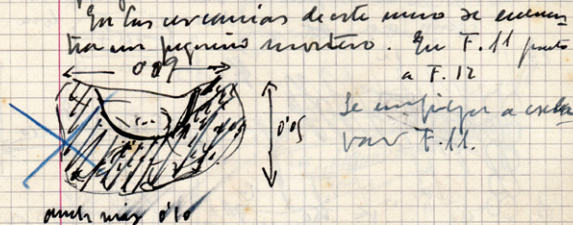 En las cercanias de este muro se encuen
tra un pequeño mortero. En F.11 junto
a F.12
0'09
0'05
Se empieza a exca
var F.11.
0'10